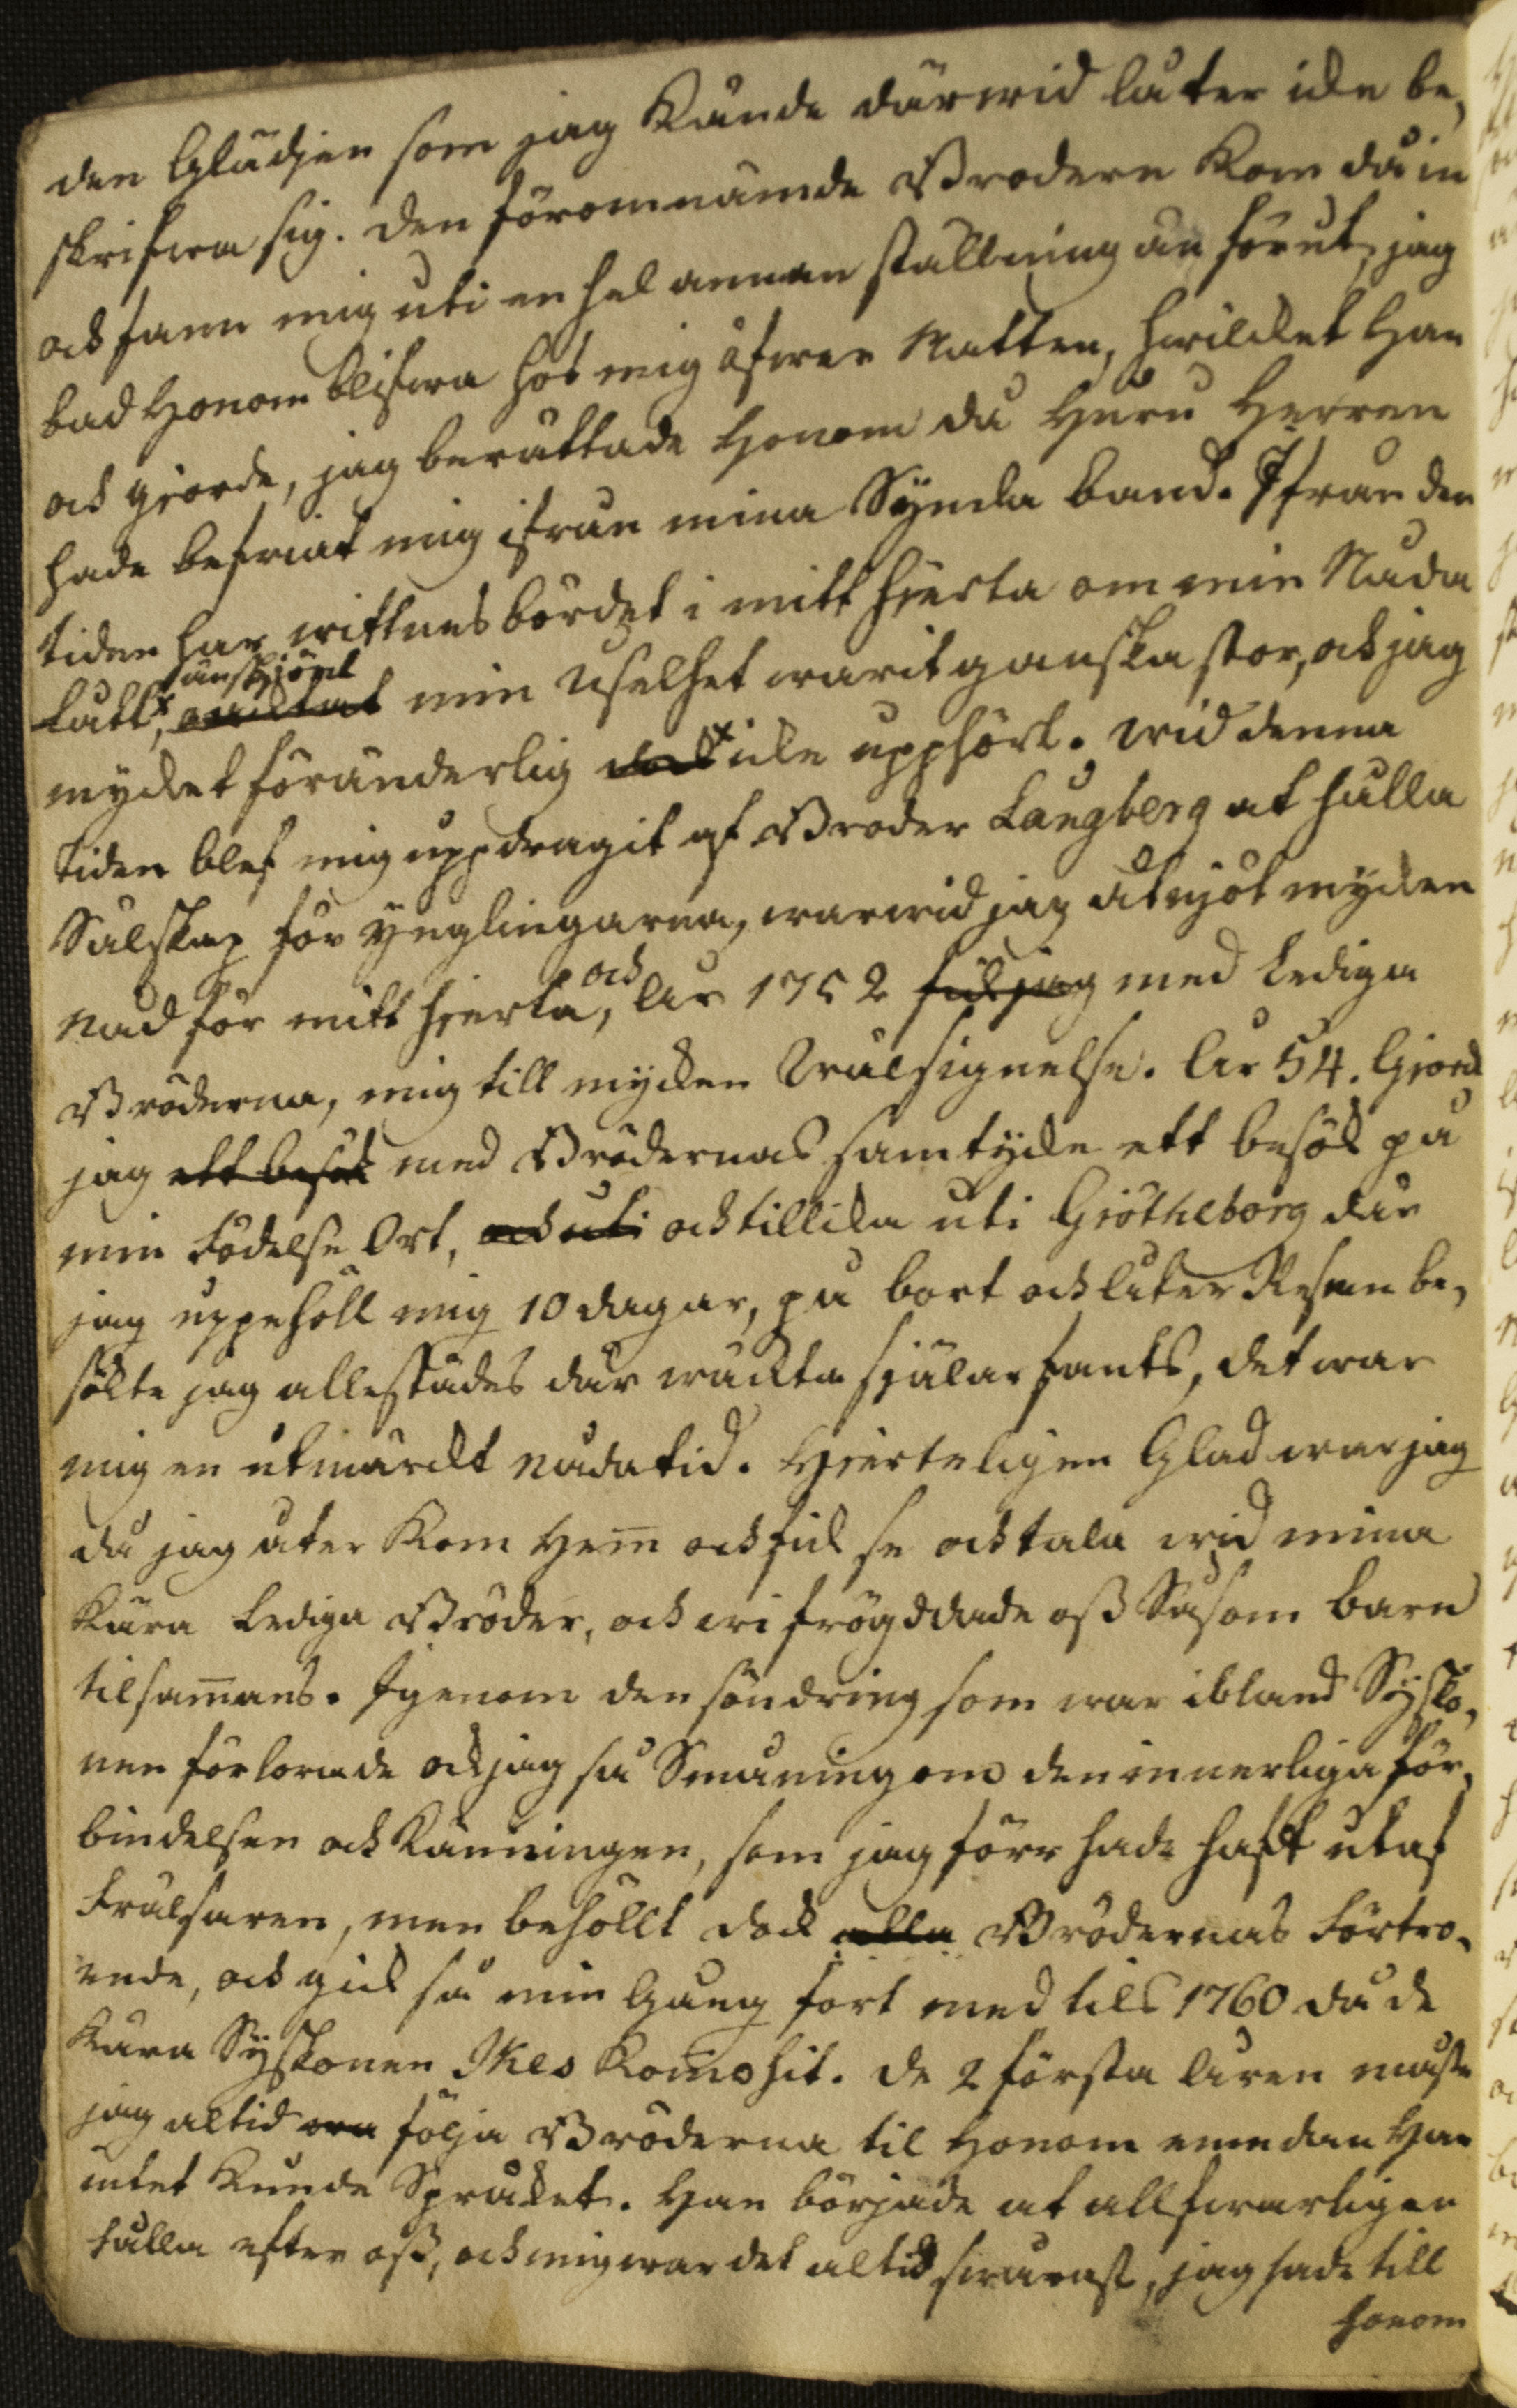 den Glädjen som jag Kände därwid låter icke be,
skrifwa sig. Den förenämnde Brodern Kom då in
ock fann mig uti en hel annan ställning än förut, jag
bad Honom blifwa hos mig öfwer Natten, hwilcket Han
ock giorde, jag berättade Honom då Huru Herren
hade befriat mig ifrån mina Synda band. Ifrån den
tiden har wittnesbördet i mitt hierta om min Nåda
lått, oansedt min uselhet warit ganska stor, ock jag
mycket föränderlig icke upphört. wid denna
tiden blef mig uppdragit af Broder Langberg at hålla
Sälskap för Ynglingarna, warwid jag åtnjöt mycken
Nåd för mitt hierta, ock År 1752 fick jag med Lediga
Bröderna, mig till mycken Wälsignelse. År 54. Giord
jag ett besök med Brödernas samtycke ett besök på
min Födelse Ort, ock uti ock tillika uti Giötheborg där
jag uppehöll mig 10 dagar, på bort ock åter Resan be,
sökte jag allestädes där wäckta själar fants, det war
mig en utmärckt nådatid. Hierteligen Glad war jag
då jag åter Kom Hem̅ ock fick se ock tala wid mina
Kära Lediga Bröder, ock wi frögdade oss Såsom barn
tilsam̅ans. Igenom den söndring som war ibland Sysko,
nen förlorade ock jag så Småningom den innerliga för,
bindelsen ock Känningen, som jag förr hade haft utaf
Frälsaren, men behöllt dock alla Brödernas Förtro,
ende, ock gick så min Gång fort med tils 1760 då de
Kära Syskonen Ikes Kom̅o hit. De 2 första åren måste
jag altid följa Bröderna til Honom emedan Han
intet Kunde Språket. Han började at allfwarligen
hålla efter oss, ock mig war det altid swårast, jag sade till
honom